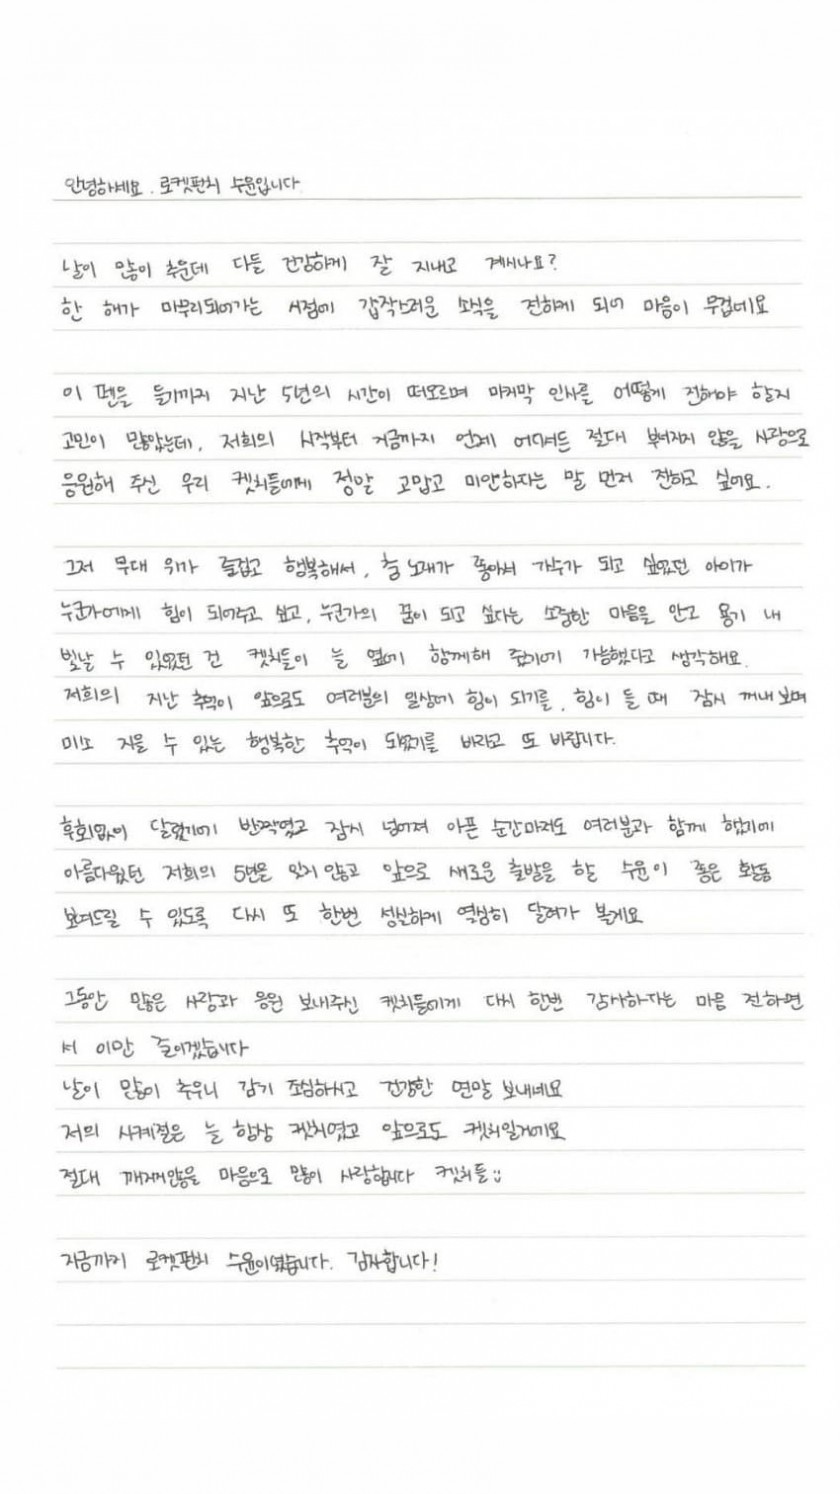 안녕하세요. 로켓펀치 수윤입니다
날이 많이 추운데 다들 건강하게 잘 지내고 계시나요?
한 해가 마무리되어가는 시점에 갑작스러운 소식을 전하게 되어 마음이 무겁네요
이 펜을 들기까지 지난 5년의 시간이 떠오르며 마지막 인사를 어떻게 전해야 할지
고민이 많았는데, 저희의 시작부터 지금까지 언제 어디서든 절대 부서지지 않을 사랑으로
응원해 주신 우리 켓치들에게 정말 고맙고 미안하다는 말 먼저 전하고 싶어요.
그저 무대 위가 즐겁고 행복해서, 춤 노래가 좋아서 가수가 되고 싶었던 아이가
누군가에게 힘이 되어주고 싶고, 누군가의 꿈이 되고 싶다는 소중한 마음을 안고 용기 내
빛날 수 있었던 건 켓치들이 늘 옆에 함께해 줬기에 가능했다고 생각해요.
저희의 지난 추억이 앞으로도 여러분의 일상에 힘이 되기를, 힘이 들 때 잠시 꺼내 보며
미소 지을 수 있는 행복한 추억이 되었기를 바라고 또 바랍니다.
후회없이 달렸기에 반짝였고 잠시 넘어져 아픈 순간마저도 여러분과 함께 했기에
아름다웠던 저희의 5년을 잊지 않고 앞으로 새로운 출발을 할 수윤이 좋은 활동
보여드릴 수 있도록 다시 또 한번 성실하게 열심히 달려가 볼게요
그동안 많은 사랑과 응원 보내주신 켓치들에게 다시 한번 감사하다는 마음 전하면
서 이만 줄이겠습니다
날이 많이 추우니 감기 조심하시고 건강한 연말 보내세요
저의 사계절은 늘 항상 켓치였고 앞으로도 켓치일거예요
절대 깨지지않을 마음으로 많이 사랑합니다 켓치들 :)
지금까지 로켓펀치 수윤이었습니다. 감사합니다!